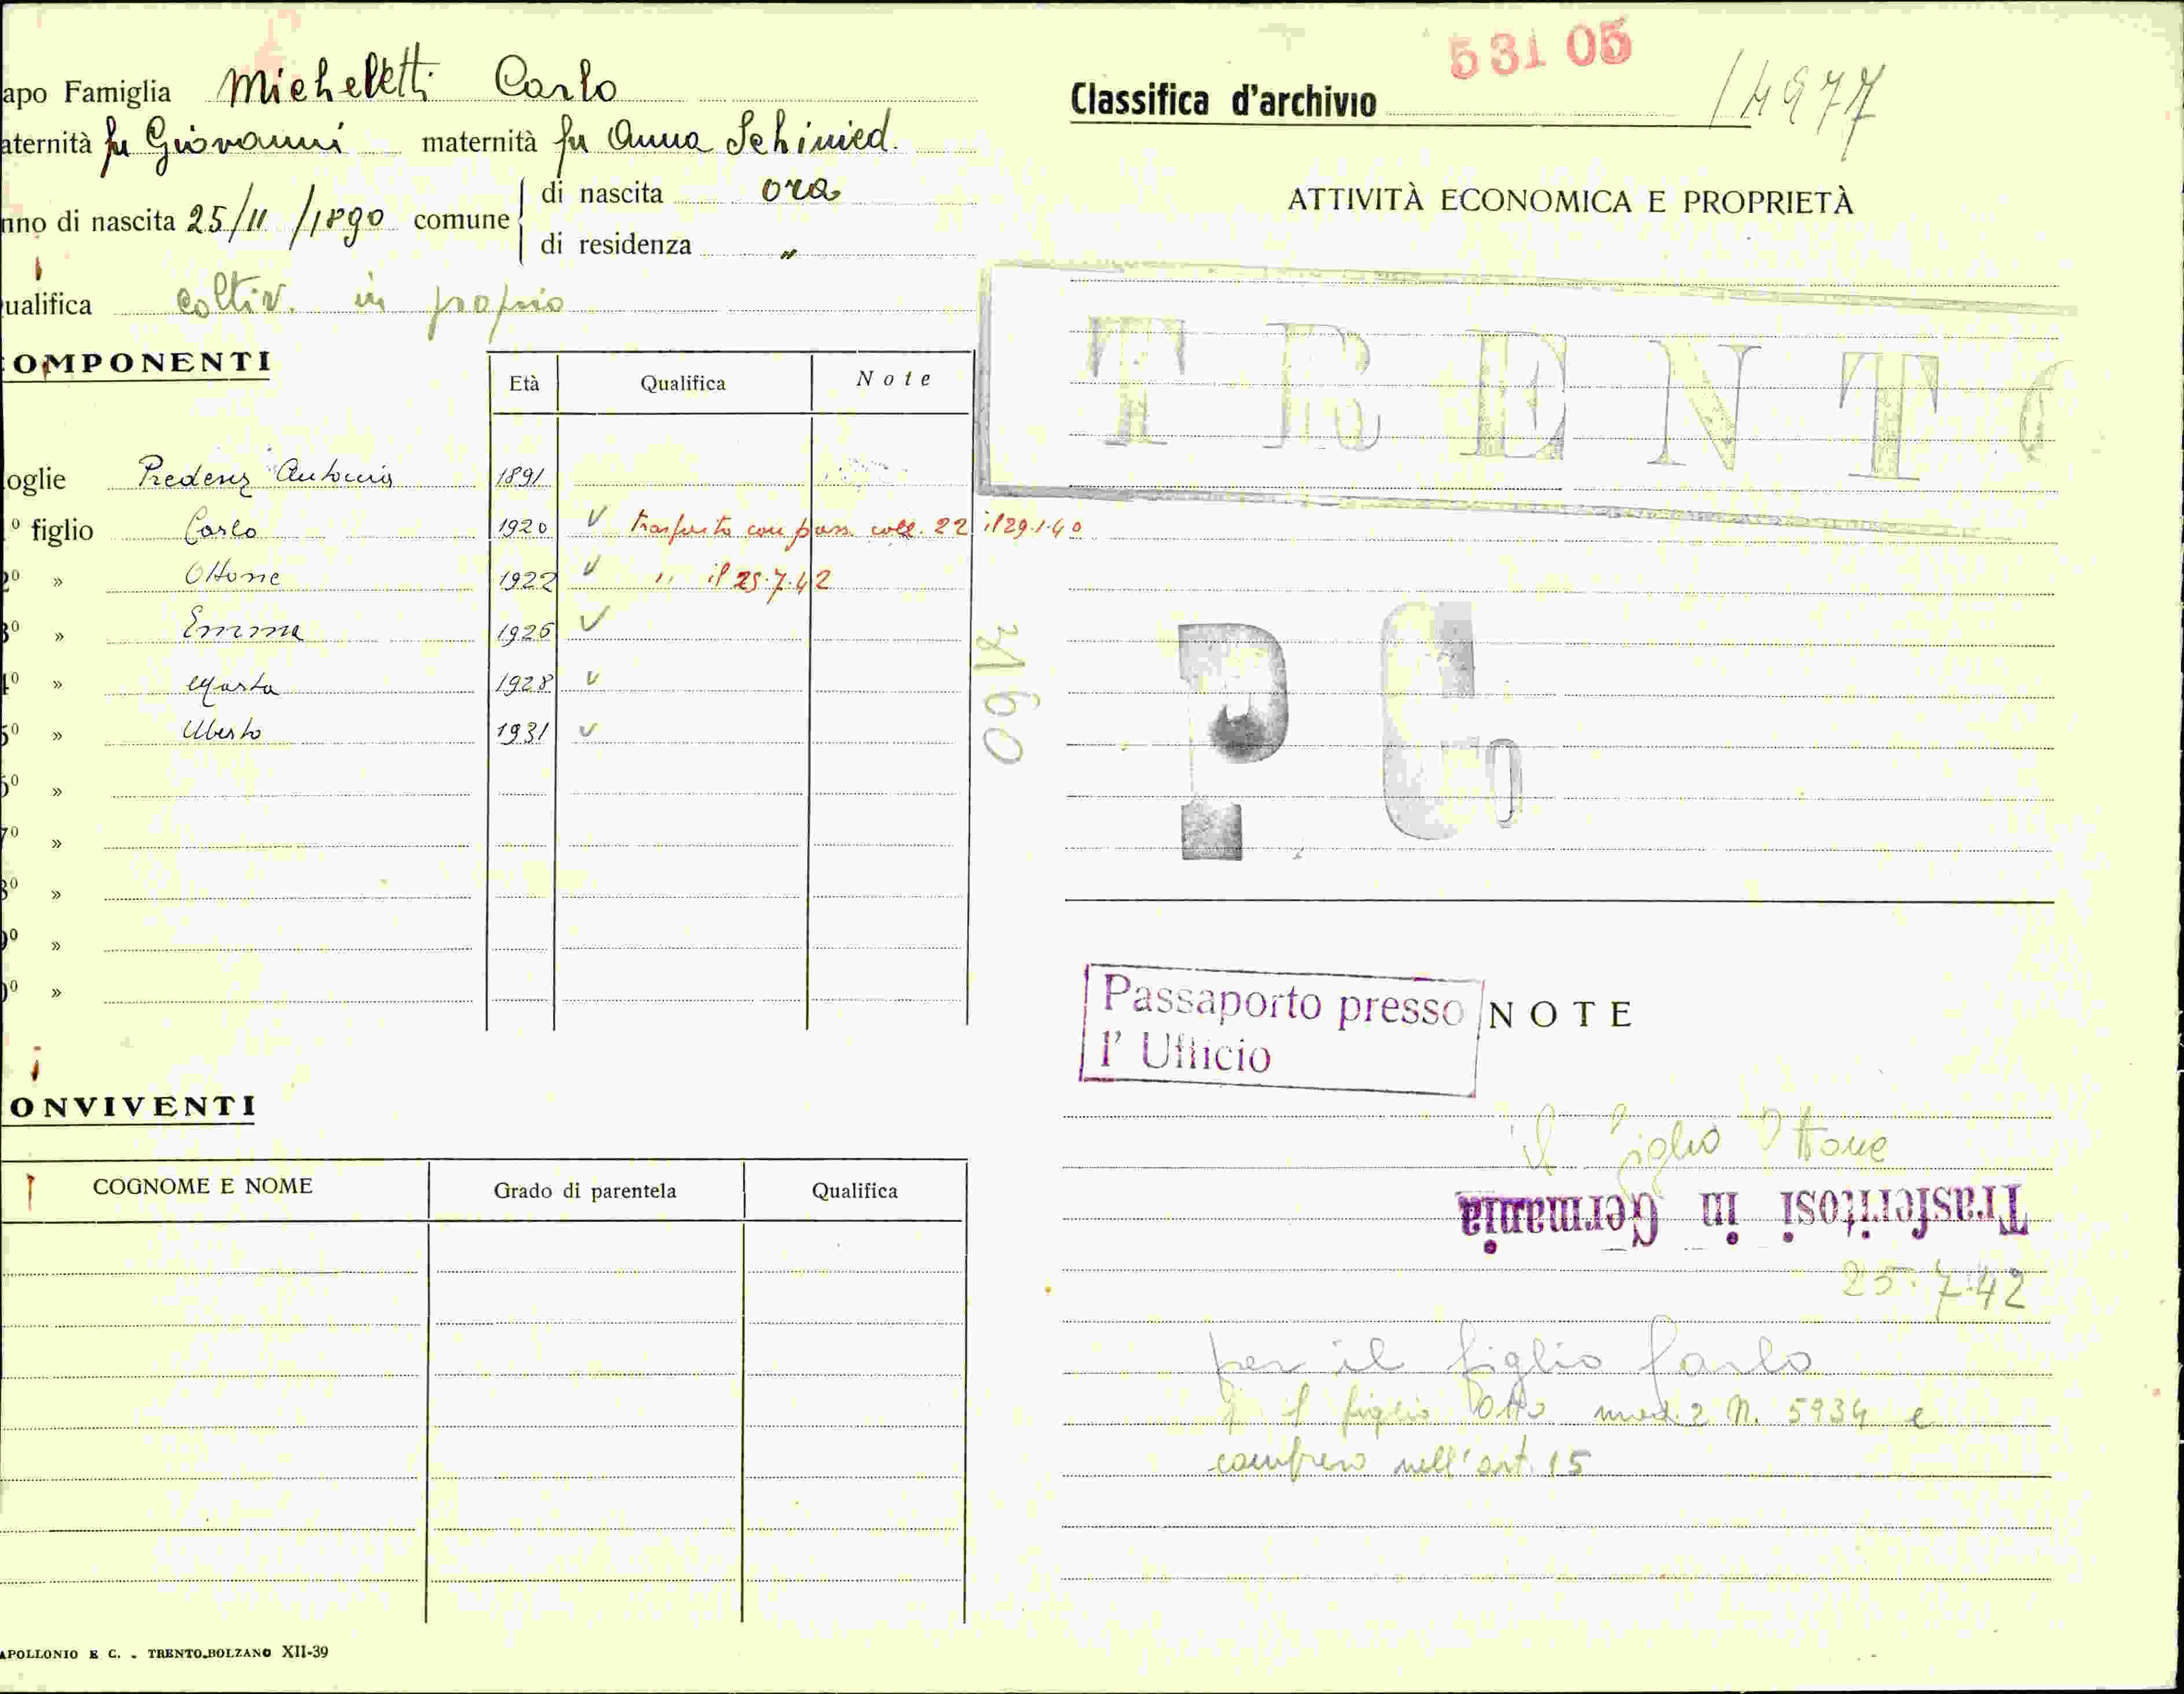 apo Famiglia Micheletti Carlo
aternità fu Giovanni maternità fu Anna Schmied.
nno di nascita 25/11/1890 comune di nascita ora
di residenza "
ualifica coltiv. in proprio
OMPONENTI
Età Qualifica Note
oglie Predenz Antonia 1891
1º figlio Carlo 1920 v trasferito con pass. coll. 22 il 29.1.40
2º » Ottone 1922 v " il 25.7.42
3º » Emma 1926 v
4º » Marta 1928 v
5º » Uberto 1931 v
6º »
7º »
8º »
9º »
0º »
ONVIVENTI
COGNOME E NOME Grado di parentela Qualifica
APOLLONIO E C. - TRENTO-BOLZANO XII-39
53105
Classifica d'archivio 14977
ATTIVITÀ ECONOMICA E PROPRIETÀ
TRENTO
P.
Passaporto presso
l' Ufficio
NOTE
il figlio Ottone
Trasferitosi in Germania
25.7.42
per il figlio Carlo
figlio Otto mod. 2 N. 5934 e
compreso nell'art. 15